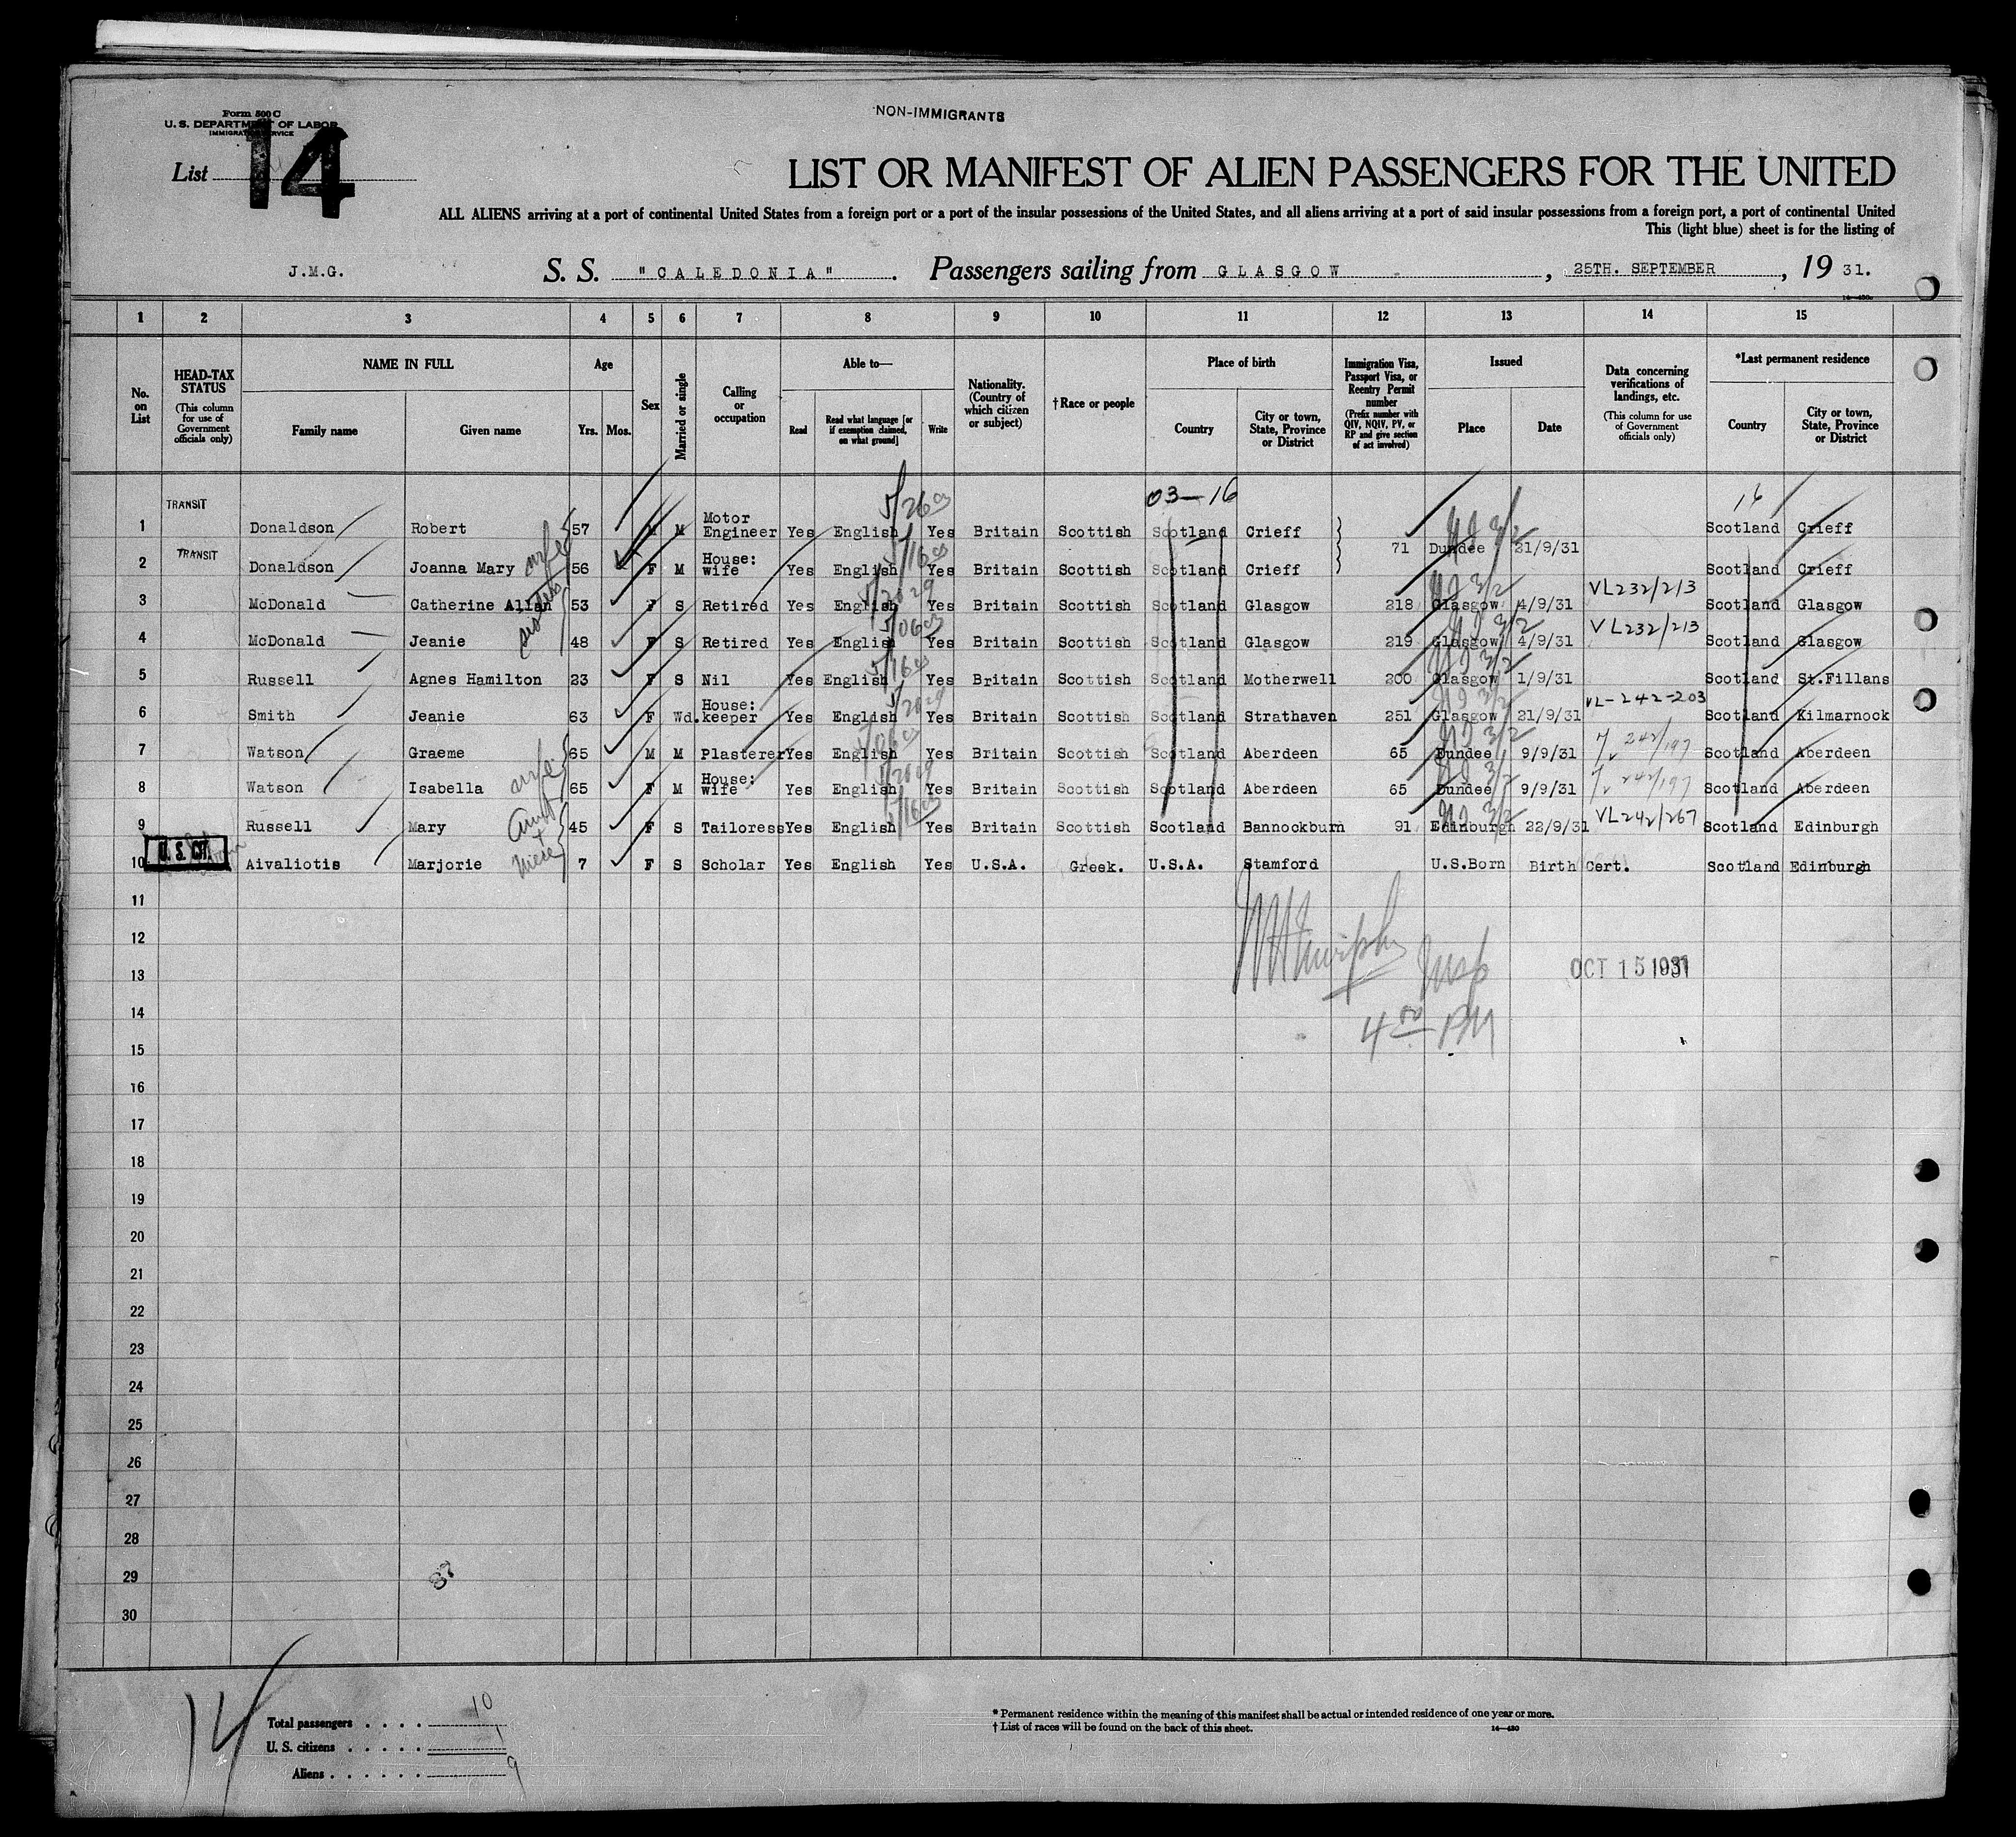 Form 500 C
U. S. DEPARTMENT OF LABOR
IMMIGRATION SERVICE
NON-IMMIGRANTS
List 14
LIST OR MANIFEST OF ALIEN PASSENGERS FOR THE UNITED
ALL ALIENS arriving at a port of continental United States from a foreign port or a port of the insular possessions of the United States, and all aliens arriving at a port of said insular possessions from a foreign port, a port of continental United
This (light blue) sheet is for the listing of
J.M.G. S. S. "CALEDONIA". Passengers sailing from GLASGOW, 25TH. SEPTEMBER, 19 31.
1 2 3 4 5 6 7 8 9 10 11 12 13 14 15
No. on List
HEAD-TAX STATUS (This column for use of Government officials only)
NAME IN FULL
Family name Given name
Age
Yrs. Mos.
Sex
Married or single
Calling or occupation
Able to—
Read
Read what language [or if exemption claimed, on what ground]
Write
Nationality. (Country of which citizen or subject)
†Race or people
Place of birth
Country
City or town, State, Province or District
Immigration Visa, Passport Visa, or Reentry Permit number (Prefix number with QIV, NQIV, PV, or RP and give section of act involved)
Issued
Place Date
Data concerning verifications of landings, etc. (This column for use of Government officials only)
*Last permanent residence
Country
City or town, State, Province or District
03-16 16
1 TRANSIT Donaldson Robert 57 M M Motor Engineer Yes English Yes Britain Scottish Scotland Crieff Scotland Crieff
71 Dundee 21/9/31
2 TRANSIT Donaldson Joanna Mary wife 56 F M House: wife Yes English Yes Britain Scottish Scotland Crieff Scotland Crieff
3 McDonald Catherine Allan 53 F S Retired Yes English Yes Britain Scottish Scotland Glasgow 218 Glasgow 4/9/31 VL232/213 Scotland Glasgow
sisters
4 McDonald Jeanie 48 F S Retired Yes English Yes Britain Scottish Scotland Glasgow 219 Glasgow 4/9/31 VL232/213 Scotland Glasgow
5 Russell Agnes Hamilton 23 F S Nil Yes English Yes Britain Scottish Scotland Motherwell 200 Glasgow 1/9/31 Scotland St.Fillans
6 Smith Jeanie 63 F Wd. House: keeper Yes English Yes Britain Scottish Scotland Strathaven 251 Glasgow 21/9/31 VL-242-203 Scotland Kilmarnock
7 Watson Graeme 65 M M Plasterer Yes English Yes Britain Scottish Scotland Aberdeen 65 Dundee 9/9/31 242/197 Scotland Aberdeen
8 Watson Isabella wife 65 F M House: wife Yes English Yes Britain Scottish Scotland Aberdeen 65 Dundee 9/9/31 242/197 Scotland Aberdeen
9 Russell Mary Aunt + 45 F S Tailoress Yes English Yes Britain Scottish Scotland Bannockburn 91 Edinburgh 22/9/31 VL242/267 Scotland Edinburgh
10 U. S. CIT. Aivaliotis Marjorie Niece 7 F S Scholar Yes English Yes U.S.A. Greek. U.S.A. Stamford U.S.Born Birth Cert. Scotland Edinburgh
11
12
13 Insp OCT 15 1931
14 4 00 PM
15
16
17
18
19
20
21
22
23
24
25
26
27
28
29 87
30
14
Total passengers . . . . 10
U. S. citizens . . . . . 1
Aliens . . . . . . 9
* Permanent residence within the meaning of this manifest shall be actual or intended residence of one year or more.
† List of races will be found on the back of this sheet. 14—430